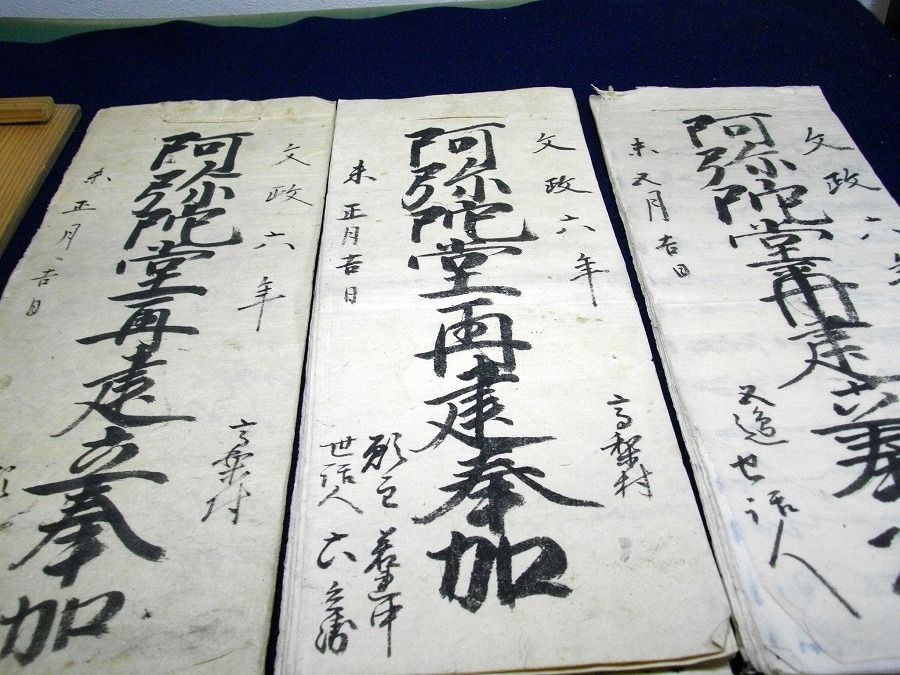 文政六年
阿弥陀堂再建立奉
未 月吉日
世話人
文政六年
高梨村
阿弥陀堂再建奉加
未正月吉日
願主 若連中
世話人 六兵衛
文政六年
高梨村
阿弥陀堂再建立奉加
未正月吉日